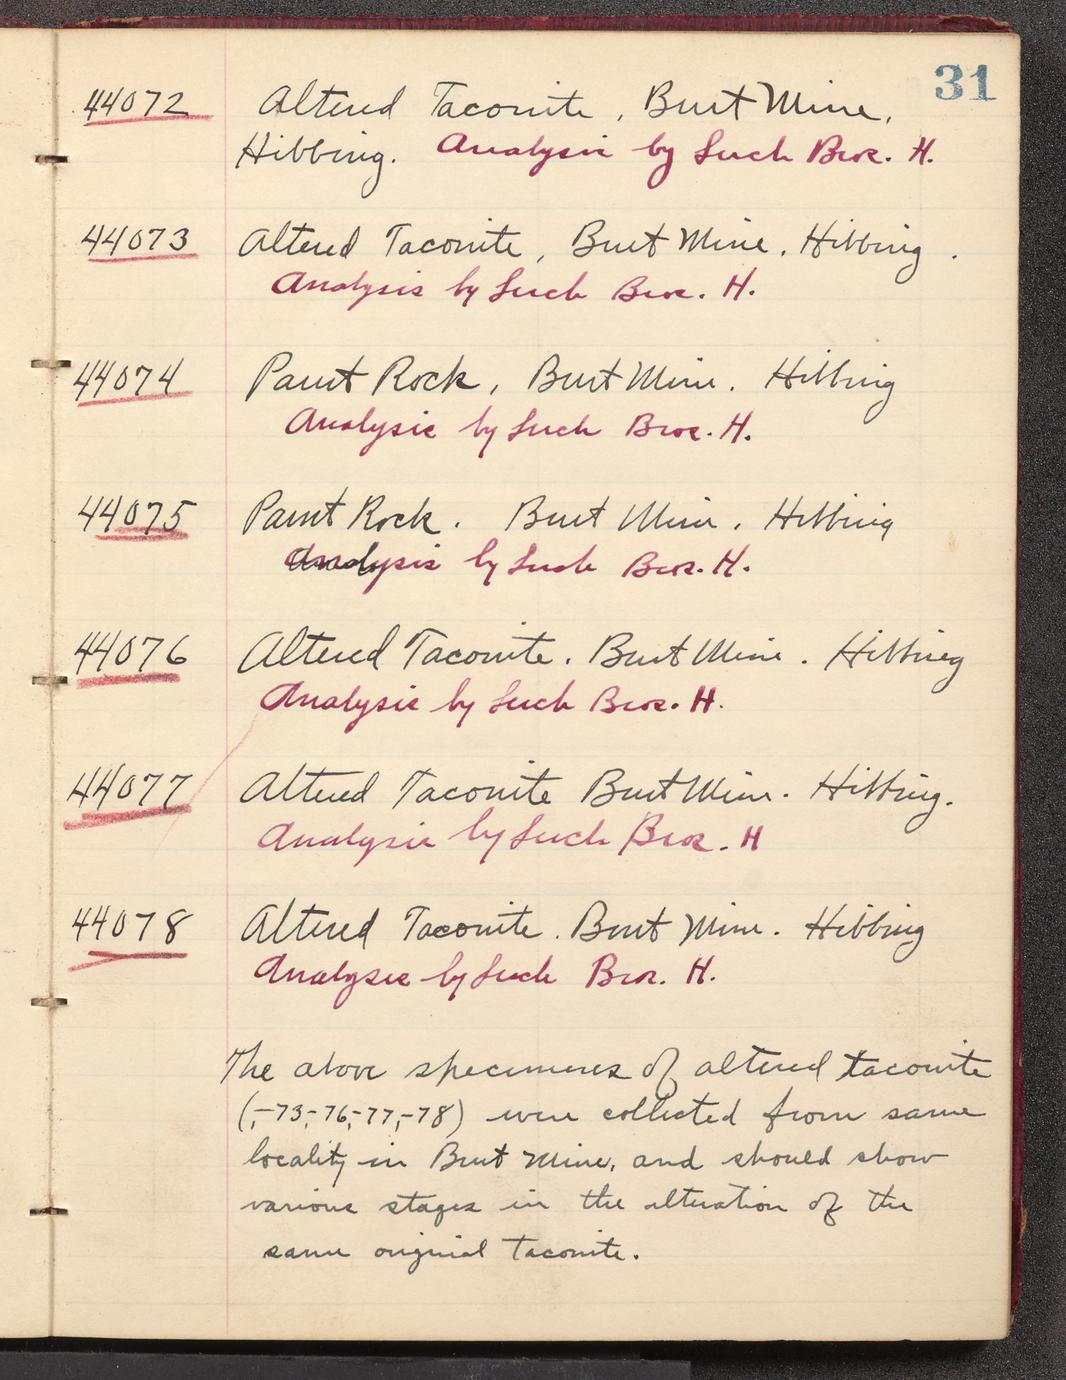 31
44072 Altered Taconite, Burt Mine,
Hibbing. Analysis by Luch Bros. H.
44073 Altered Taconite, Burt Mine. Hibbing.
Analysis by Luch Bros. H.
44074 Paint Rock, Burt Mine. Hibbing
Analysis by Luch Bros. H.
44075 Paint Rock. Burt Mine. Hibbing
Analysis by Luch Bros. H.
44076 Altered Taconite. Burt Mine. Hibbing
Analysis by Luch Bros. H.
44077 Altered Taconite Burt Mine. Hibbing.
Analysis by Luch Bros. H
44078 Altered Taconite. Burt Mine. Hibbing
Analysis by Luch Bros. H.
The above specimens of altered taconite
(,-73,-76,-77,-78) were collected from same
locality in Burt Mine, and should show
various stages in the alteration of the
same original taconite.